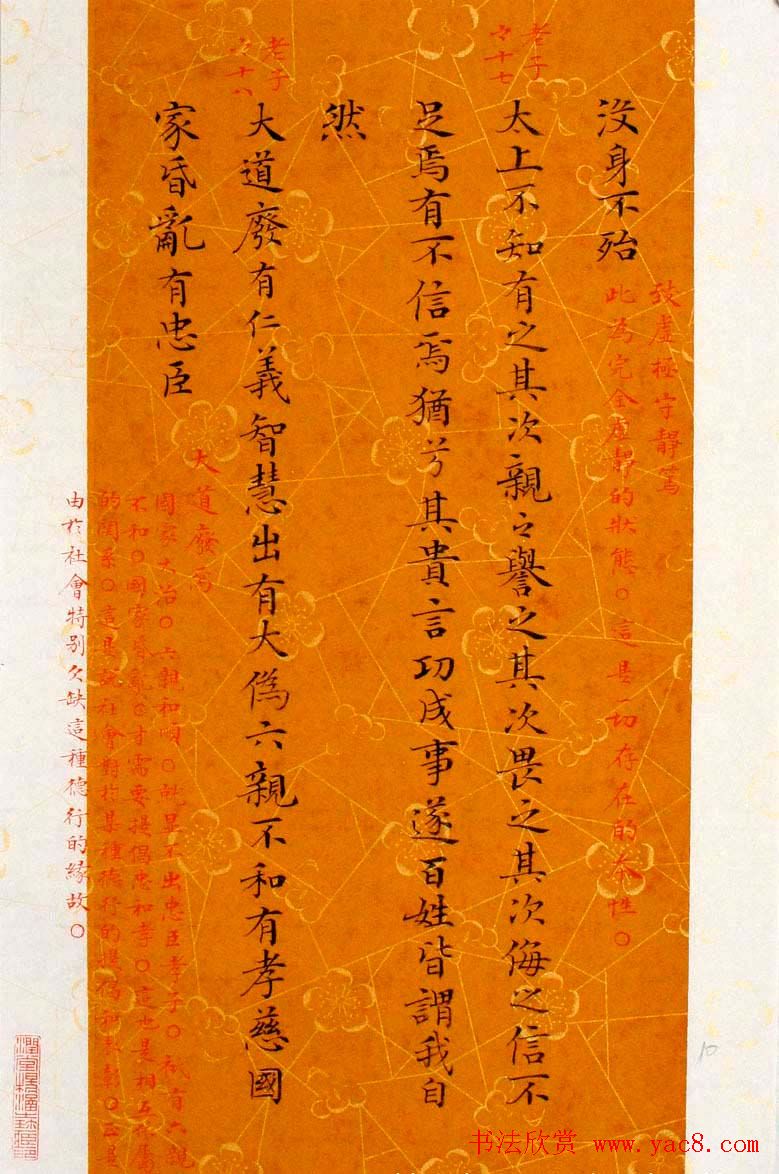 沒身不殆
致虛極守靜篤
此為完全虛靜的狀態○這是一切存在的本性○
老子
之十七
太上不知有之其次親之譽之其次畏之其次侮之信不
足焉有不信焉猶兮其貴言功成事遂百姓皆謂我自
然
老子
之十八
大道廢有仁義智慧出有大偽六親不和有孝慈國
家昏亂有忠臣
大道廢焉
國家大治○六親和順○就顯不出忠臣孝子○祇有六親
不和○國家昏亂○才需要提倡忠和孝○這也是相互依屬
的關系○這是說社會對於某種德行的提倡和表彰○正是
由於社會特別欠缺這種德行的緣故○
10
书法欣赏 www.yac8.com